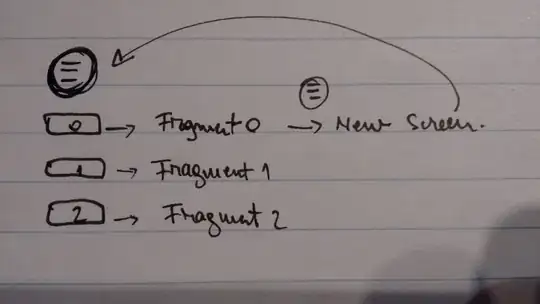 0 → Fragment 0 → New Screen.
1 → Fragment 1
2 → Fragment 2